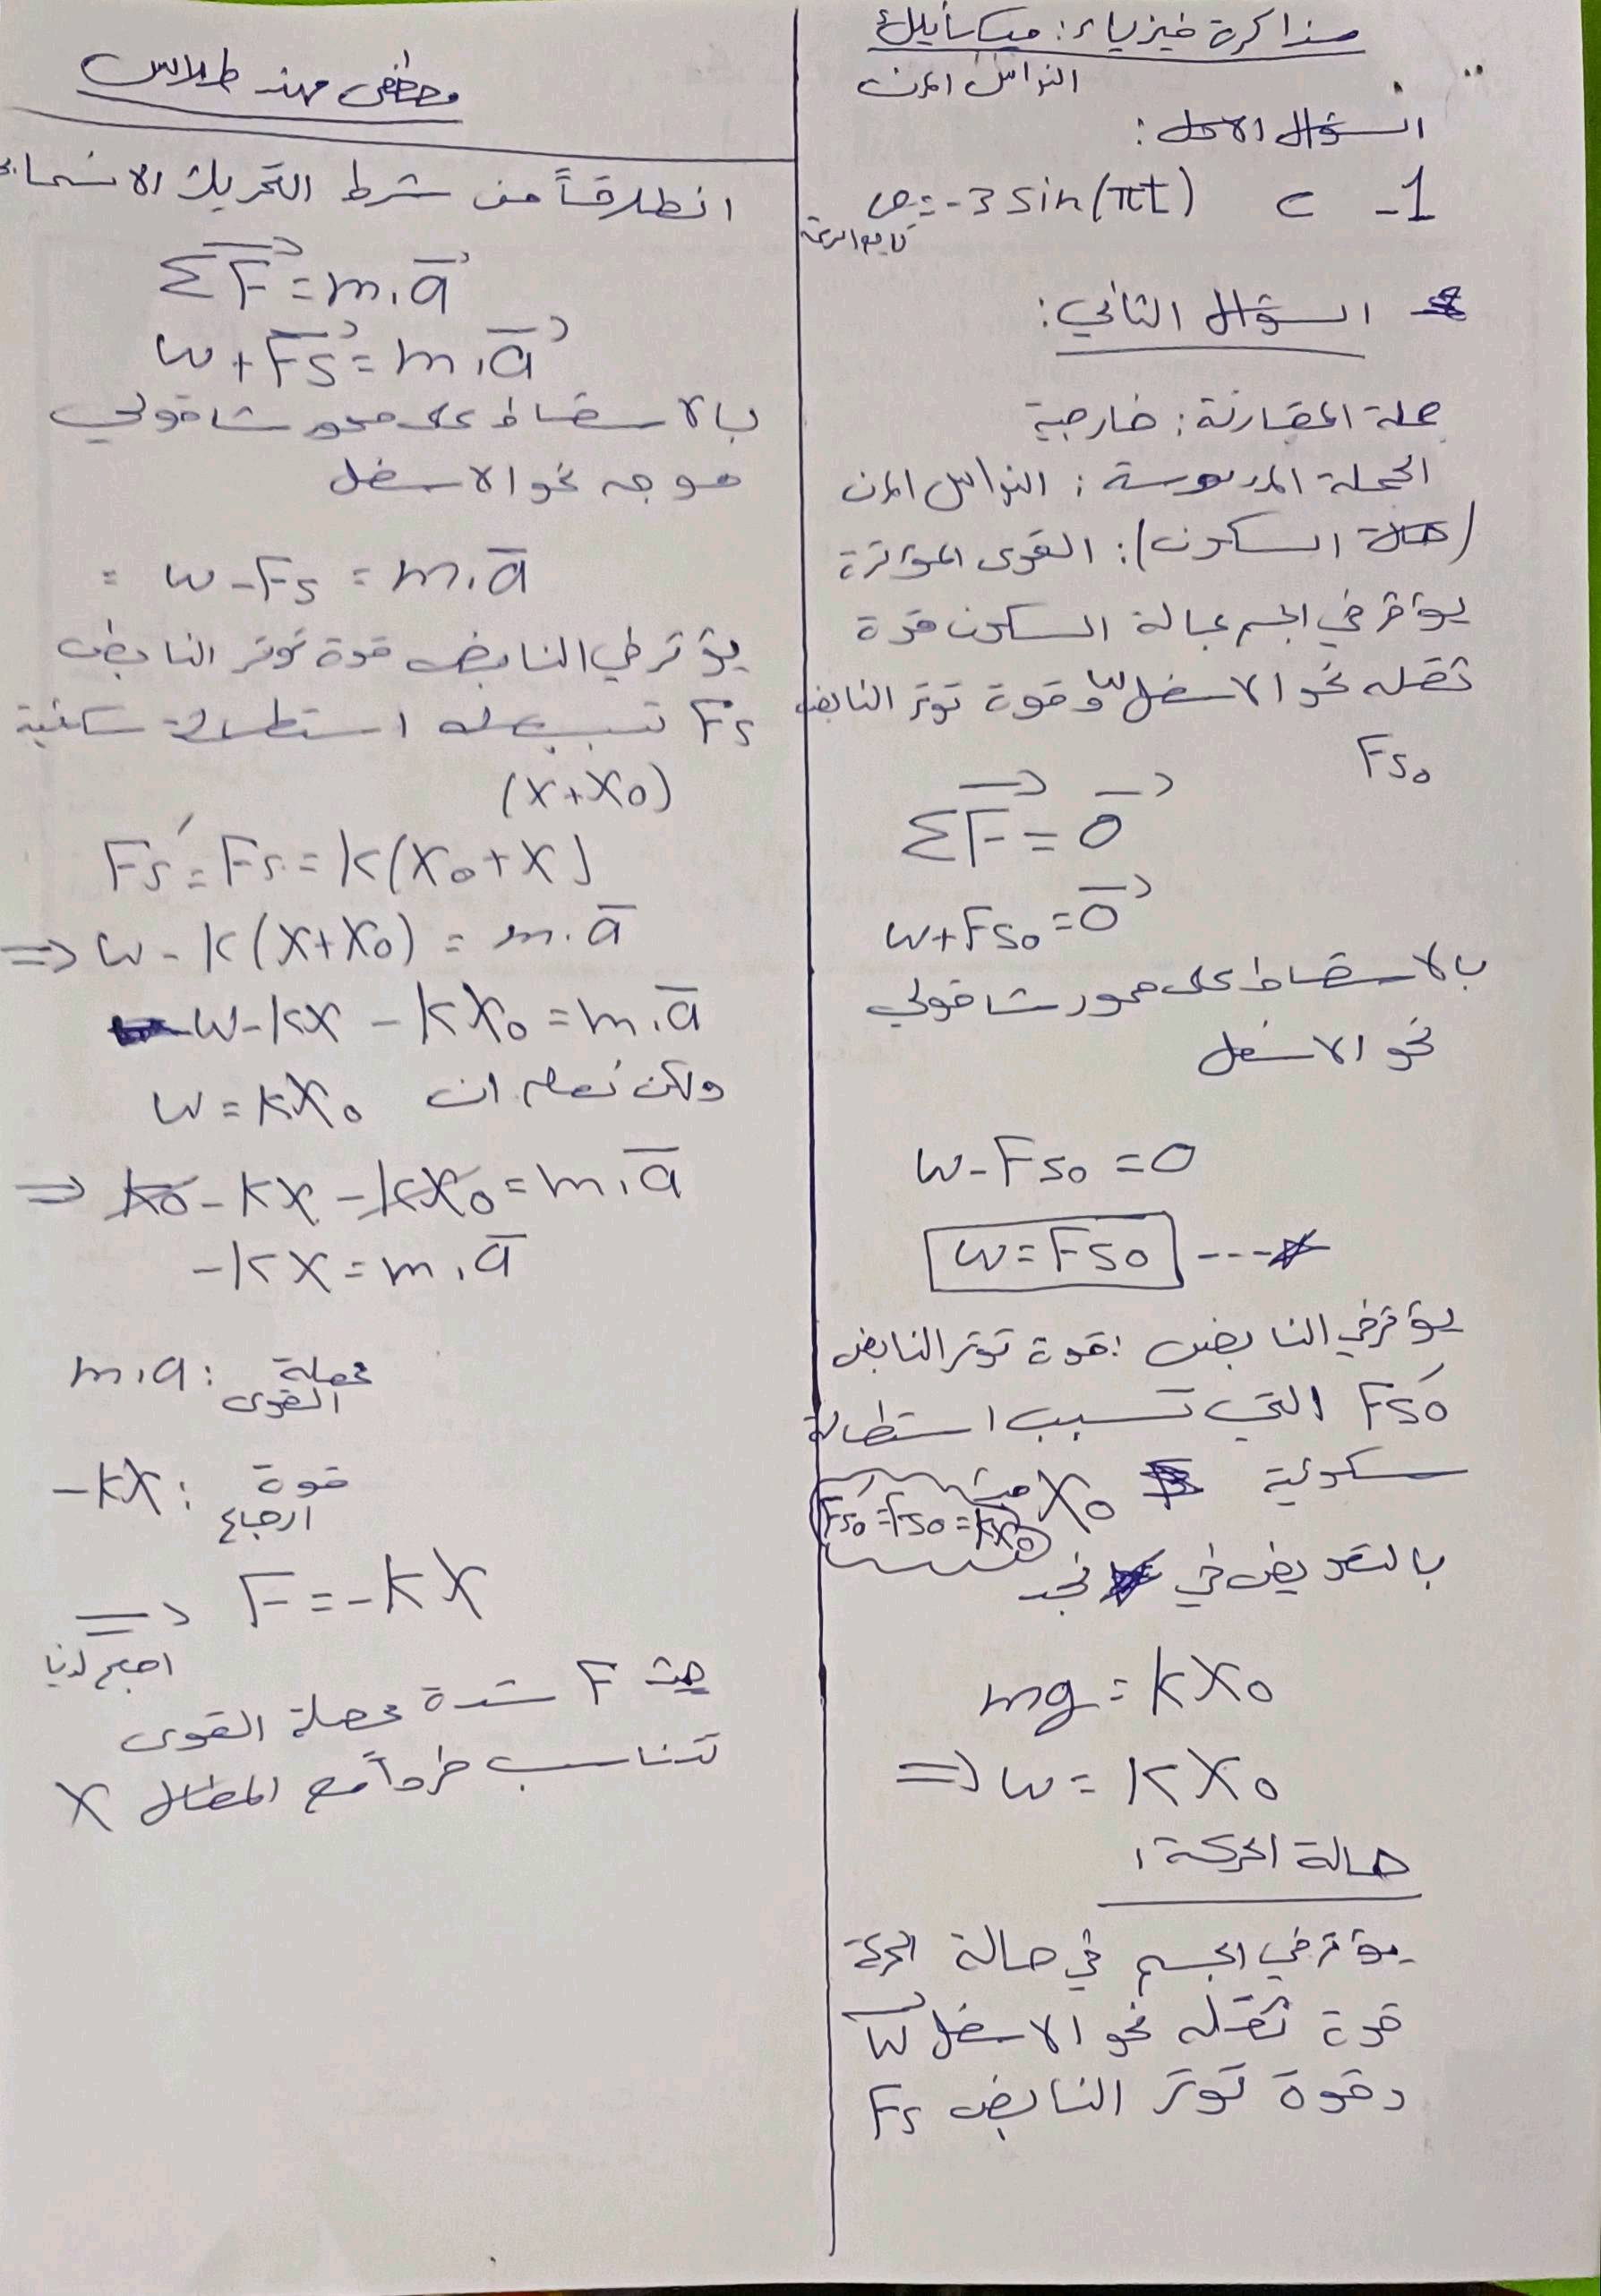 مذاكرة فيزياء: ميكانيك
النواس المرن
السؤال الاول:
1- c v = -3 sin(πt)
تابع السرعة
السؤال الثاني:
جملة المقارنة: خارجية
الجملة المدروسة: النواس المرن
(حالة السكون): القوى المؤثرة
يؤثر في الجسم بحالة السكون قوة
ثقله نحو الاسفل w وقوة توتر النابض
Fs₀
ΣF⃗ = 0⃗
w + Fs₀ = 0⃗
بالاسقاط على محور شاقولي
نحو الاسفل
w - Fs₀ = 0
w = Fs₀ ---*
يؤثر في النابض: قوة توتر النابض
Fs₀′ التي تسبب استطالة
سكونية X₀ حيث
Fs₀′ = Fs₀ = kX₀
بالتعويض في * نجد
mg = kX₀
⇒ w = kX₀
حالة الحركة:
يؤثر في الجسم في حالة الحركة
قوة ثقله نحو الاسفل w⃗
وقوة توتر النابض Fs
مصطفى مهند طلاس
انطلاقاً من شرط التحريك الانسحابي
ΣF⃗ = m.a⃗
w + Fs⃗ = m.a⃗
بالاسقاط على محور شاقولي
موجه نحو الاسفل
= w - Fs = m.a̅
يؤثر في النابض قوة توتر النابض
Fs′ تسبب له استطالة سكنية
(x+x₀)
Fs′ = Fs = k(x₀+x)
⇒ w - k(x+x₀) = m.a̅
w - kx - kx₀ = m.a̅
ولكن نعلم ان w = kx₀
⇒ k₀ - kx - kx₀ = m.a̅
-kx = m.a̅
m.a : محصلة القوى
-kx : قوة ارجاع
⇒ F = -kx
اصبح لدينا
حيث F شدة محصلة القوى
تتناسب طرداً مع المطال X